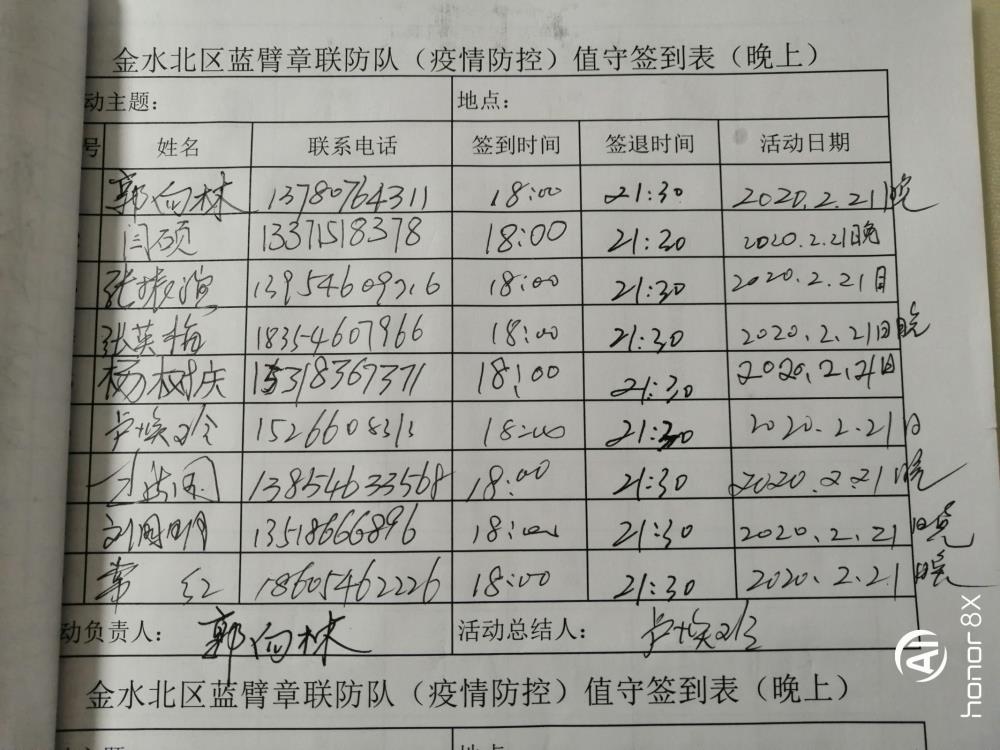 金水北区蓝臂章联防队（疫情防控）值守签到表（晚上）
动主题： 地点：
号 姓名 联系电话 签到时间 签退时间 活动日期
郭向林 13780764311 18:00 21:30 2020.2.21日晚
闫硕 13371518378 18:00 21:30 2020.2.21日晚
张 13954609216 18:00 21:30 2020.2.21日
张英梅 18354607966 18:00 21:30 2020.2.21日晚
杨树庆 15318367371 18:00 21:30 2020.2.21日
卢焕玲 1526608313 18:00 21:30 2020.2.21日
13854633568 18:00 21:30 2020.2.21晚
刘明明 13518666896 18:00 21:30 2020.2.21日晚
常红 18605462226 18:00 21:30 2020.2.21日晚
动负责人： 郭向林 活动总结人： 卢焕玲
金水北区蓝臂章联防队（疫情防控）值守签到表（晚上）
AI honor 8X